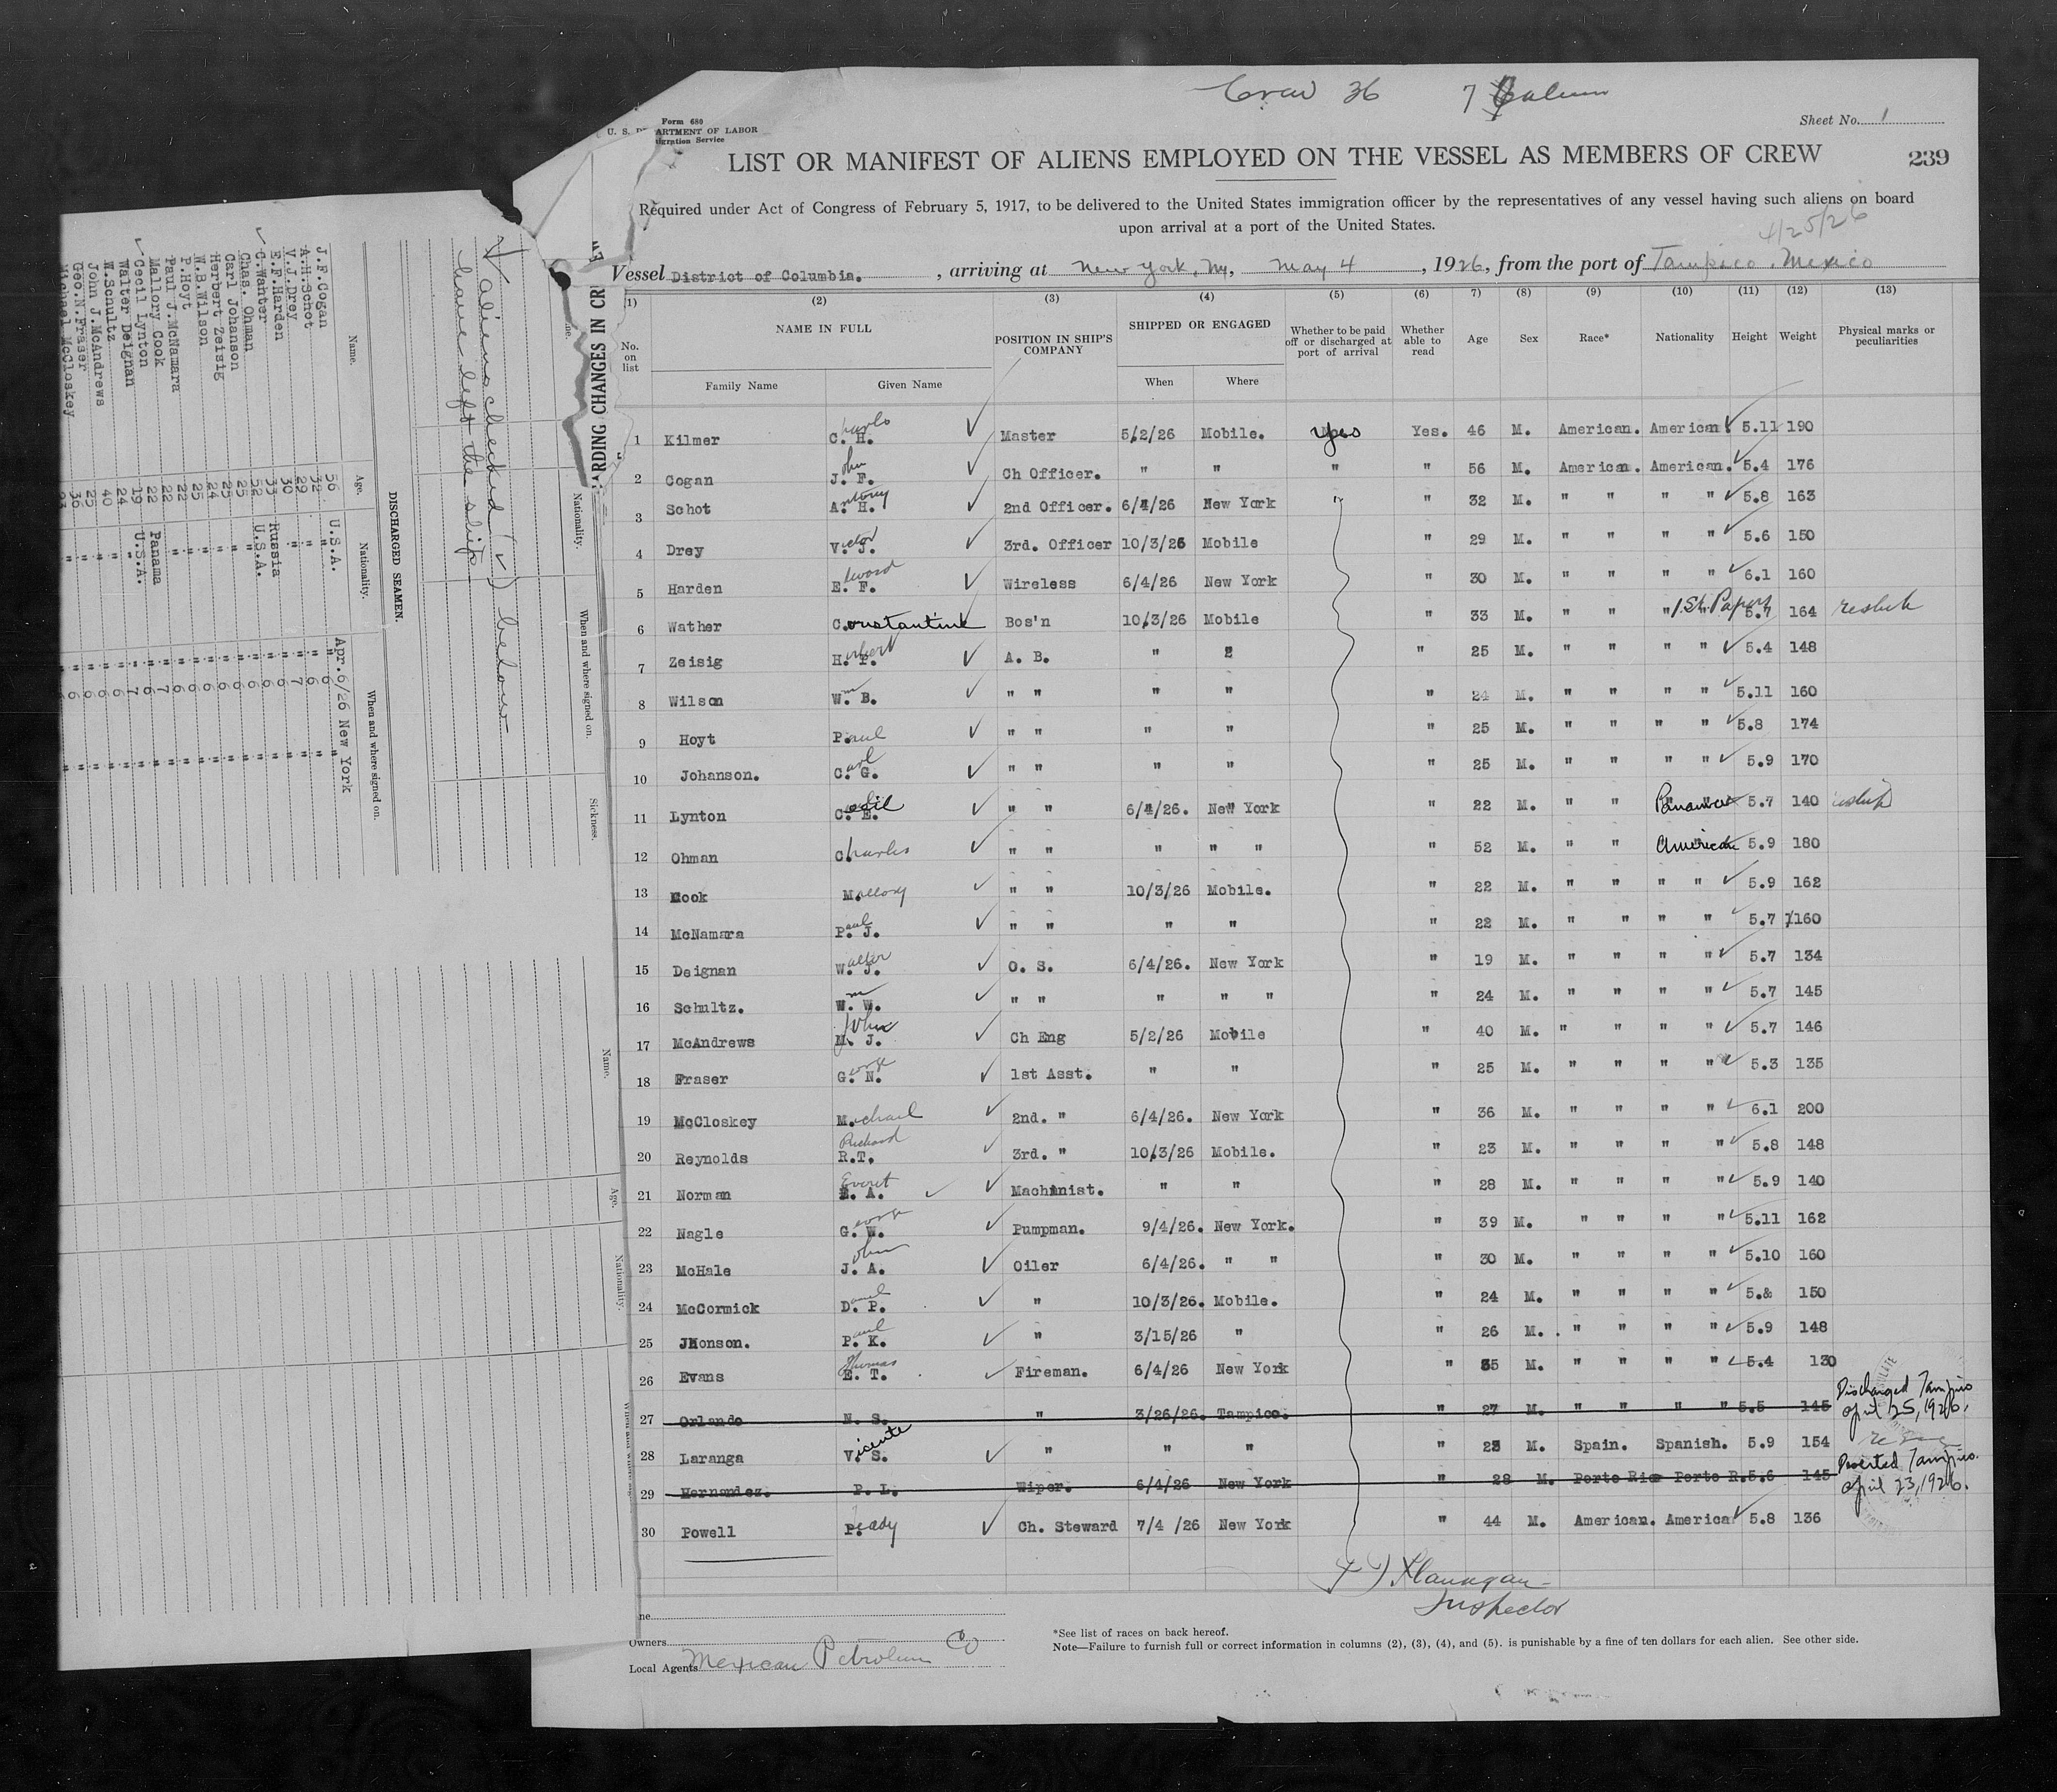 Crew 36 7
Form 680
U. S. DEPARTMENT OF LABOR
Immigration Service
Sheet No. 1
LIST OR MANIFEST OF ALIENS EMPLOYED ON THE VESSEL AS MEMBERS OF CREW
239
Required under Act of Congress of February 5, 1917, to be delivered to the United States immigration officer by the representatives of any vessel having such aliens on board
upon arrival at a port of the United States.
4/25/26
Vessel District of Columbia. , arriving at New York, Ny, May 4 , 1926, from the port of Tampico. Mexico
(1) (2) (3) (4) (5) (6) 7) (8) (9) (10) (11) (12) (13)
No. on list NAME IN FULL Family Name Given Name POSITION IN SHIP'S COMPANY SHIPPED OR ENGAGED When Where Whether to be paid off or discharged at port of arrival Whether able to read Age Sex Race* Nationality Height Weight Physical marks or peculiarities
1 Kilmer C. harls H. ✓ Master 5/2/26 Mobile. Yes Yes. 46 M. American. American ✓ 5.11 190
2 Cogan J. ohn F. ✓ Ch Officer. " " " " 56 M. American. American. ✓ 5.4 176
3 Schot A. ntony H. ✓ 2nd Officer. 6/4/26 New York " " 32 M. " " " " ✓ 5.8 163
4 Drey V. ictor J. ✓ 3rd. Officer 10/3/26 Mobile " 29 M. " " " " ✓ 5.6 150
5 Harden E. dward F. ✓ Wireless 6/4/26 New York " 30 M. " " " " ✓ 6.1 160
6 Wather Constantine Bos'n 10/3/26 Mobile " 33 M. " " " 1st. Papers 5.7 164
7 Zeisig H. erbert F. ✓ A. B. " " " 25 M. " " " " ✓ 5.4 148
8 Wilson Wm. B. ✓ " " " " " 24 M. " " " " ✓ 5.11 160
9 Hoyt Paul ✓ " " " " " 25 M. " " " " ✓ 5.8 174
10 Johanson. C. arl G. ✓ " " " " " 25 M. " " " " ✓ 5.9 170
11 Lynton C. ecil E. ✓ " " 6/4/26. New York " 22 M. " " 5.7 140
12 Ohman Charles ✓ " " " " " " 52 M. " " American 5.9 180
13 Cook Mallory ✓ " " 10/3/26 Mobile. " 22 M. " " " " ✓ 5.9 162
14 McNamara P. aul J. ✓ " " " " " 22 M. " " " " 5.7 160
15 Deignan W. alter J. ✓ O. S. 6/4/26. New York " 19 M. " " " " ✓ 5.7 134
16 Schultz. W. m W. ✓ " " " " " " 24 M. " " " " ✓ 5.7 145
17 McAndrews John J. ✓ Ch Eng 5/2/26 Mobile " 40 M. " " " " ✓ 5.7 146
18 Fraser G. eorge N. ✓ 1st Asst. " " " 25 M. " " " " 5.3 135
19 McCloskey Michael ✓ 2nd. " 6/4/26. New York " 36 M. " " " " ✓ 6.1 200
20 Reynolds Richard R.T. ✓ 3rd. " 10/3/26 Mobile. " 23 M. " " " " ✓ 5.8 148
21 Norman Everet E. A. ✓ ✓ Machinist. " " " 28 M. " " " " ✓ 5.9 140
22 Nagle G. eorge W. ✓ Pumpman. 9/4/26. New York. " 39 M. " " " " ✓ 5.11 162
23 McHale J. ohn A. ✓ Oiler 6/4/26. " " " 30 M. " " " " ✓ 5.10 160
24 McCormick D. aniel P. ✓ " 10/3/26. Mobile. " 24 M. " " " " ✓ 5.& 150
25 Jhonson. P. aul K. ✓ " 3/15/26 " " 26 M. " " " " ✓ 5.9 148
26 Evans Thomas E. T. ✓ Fireman. 6/4/26 New York " 35 M. " " " " ✓ 5.4 130
27 Orlando N. S. " 3/26/26. Tampico. " 27 M. " " " " 5.5 145 Discharged Tampico April 25, 1926.
28 Laranga Vicente V. S. ✓ " " " " M. Spain. Spanish. 5.9 154
29 Hernandez. P. L. Wiper. 6/4/26 New York " 28 M. Porto Rico Porto R. 5.6 145 Deserted Tampico. April 23, 1926.
30 Powell Peady ✓ Ch. Steward 7/4 /26 New York " 44 M. American. America ✓ 5.8 136
Flanagan
Inspector
Owners
Local Agents Mexican Petroleum Co
*See list of races on back hereof.
Note—Failure to furnish full or correct information in columns (2), (3), (4), and (5). is punishable by a fine of ten dollars for each alien. See other side.
ARDING CHANGES IN CRE
Nationality. When and where signed on. Sickness.
✓ aliens checked (✓) below
have left the ship
DISCHARGED SEAMEN.
Name. Age. Nationality. When and where signed on.
J.F.Cogan 56 U.S.A. Apr.6/26 New York
A.H.Schot 32 " " 6 "
V.J.Drey 29 " " "
E.F.Harden 30 " " "
✓ C.Wanter 33 Russia " "
Chas. Ohman 52 U.S.A. " "
Carl Johanson 25 " " "
Herbert Zeisig " "
W.B.Wilson " "
P.Hoyt " "
Paul J.McNamara 22 " " "
Mallory Cook 22 " "
✓ Cecil Lynton 22 Panama " "
Walter Deignan 19 U.S.A. " "
W.Schultz 24 " " "
John J.McAndrews 40 " " "
Geo.N.Fraser 25 " " "
Michael McCloskey 36 " " "
Name. Age. Nationality.